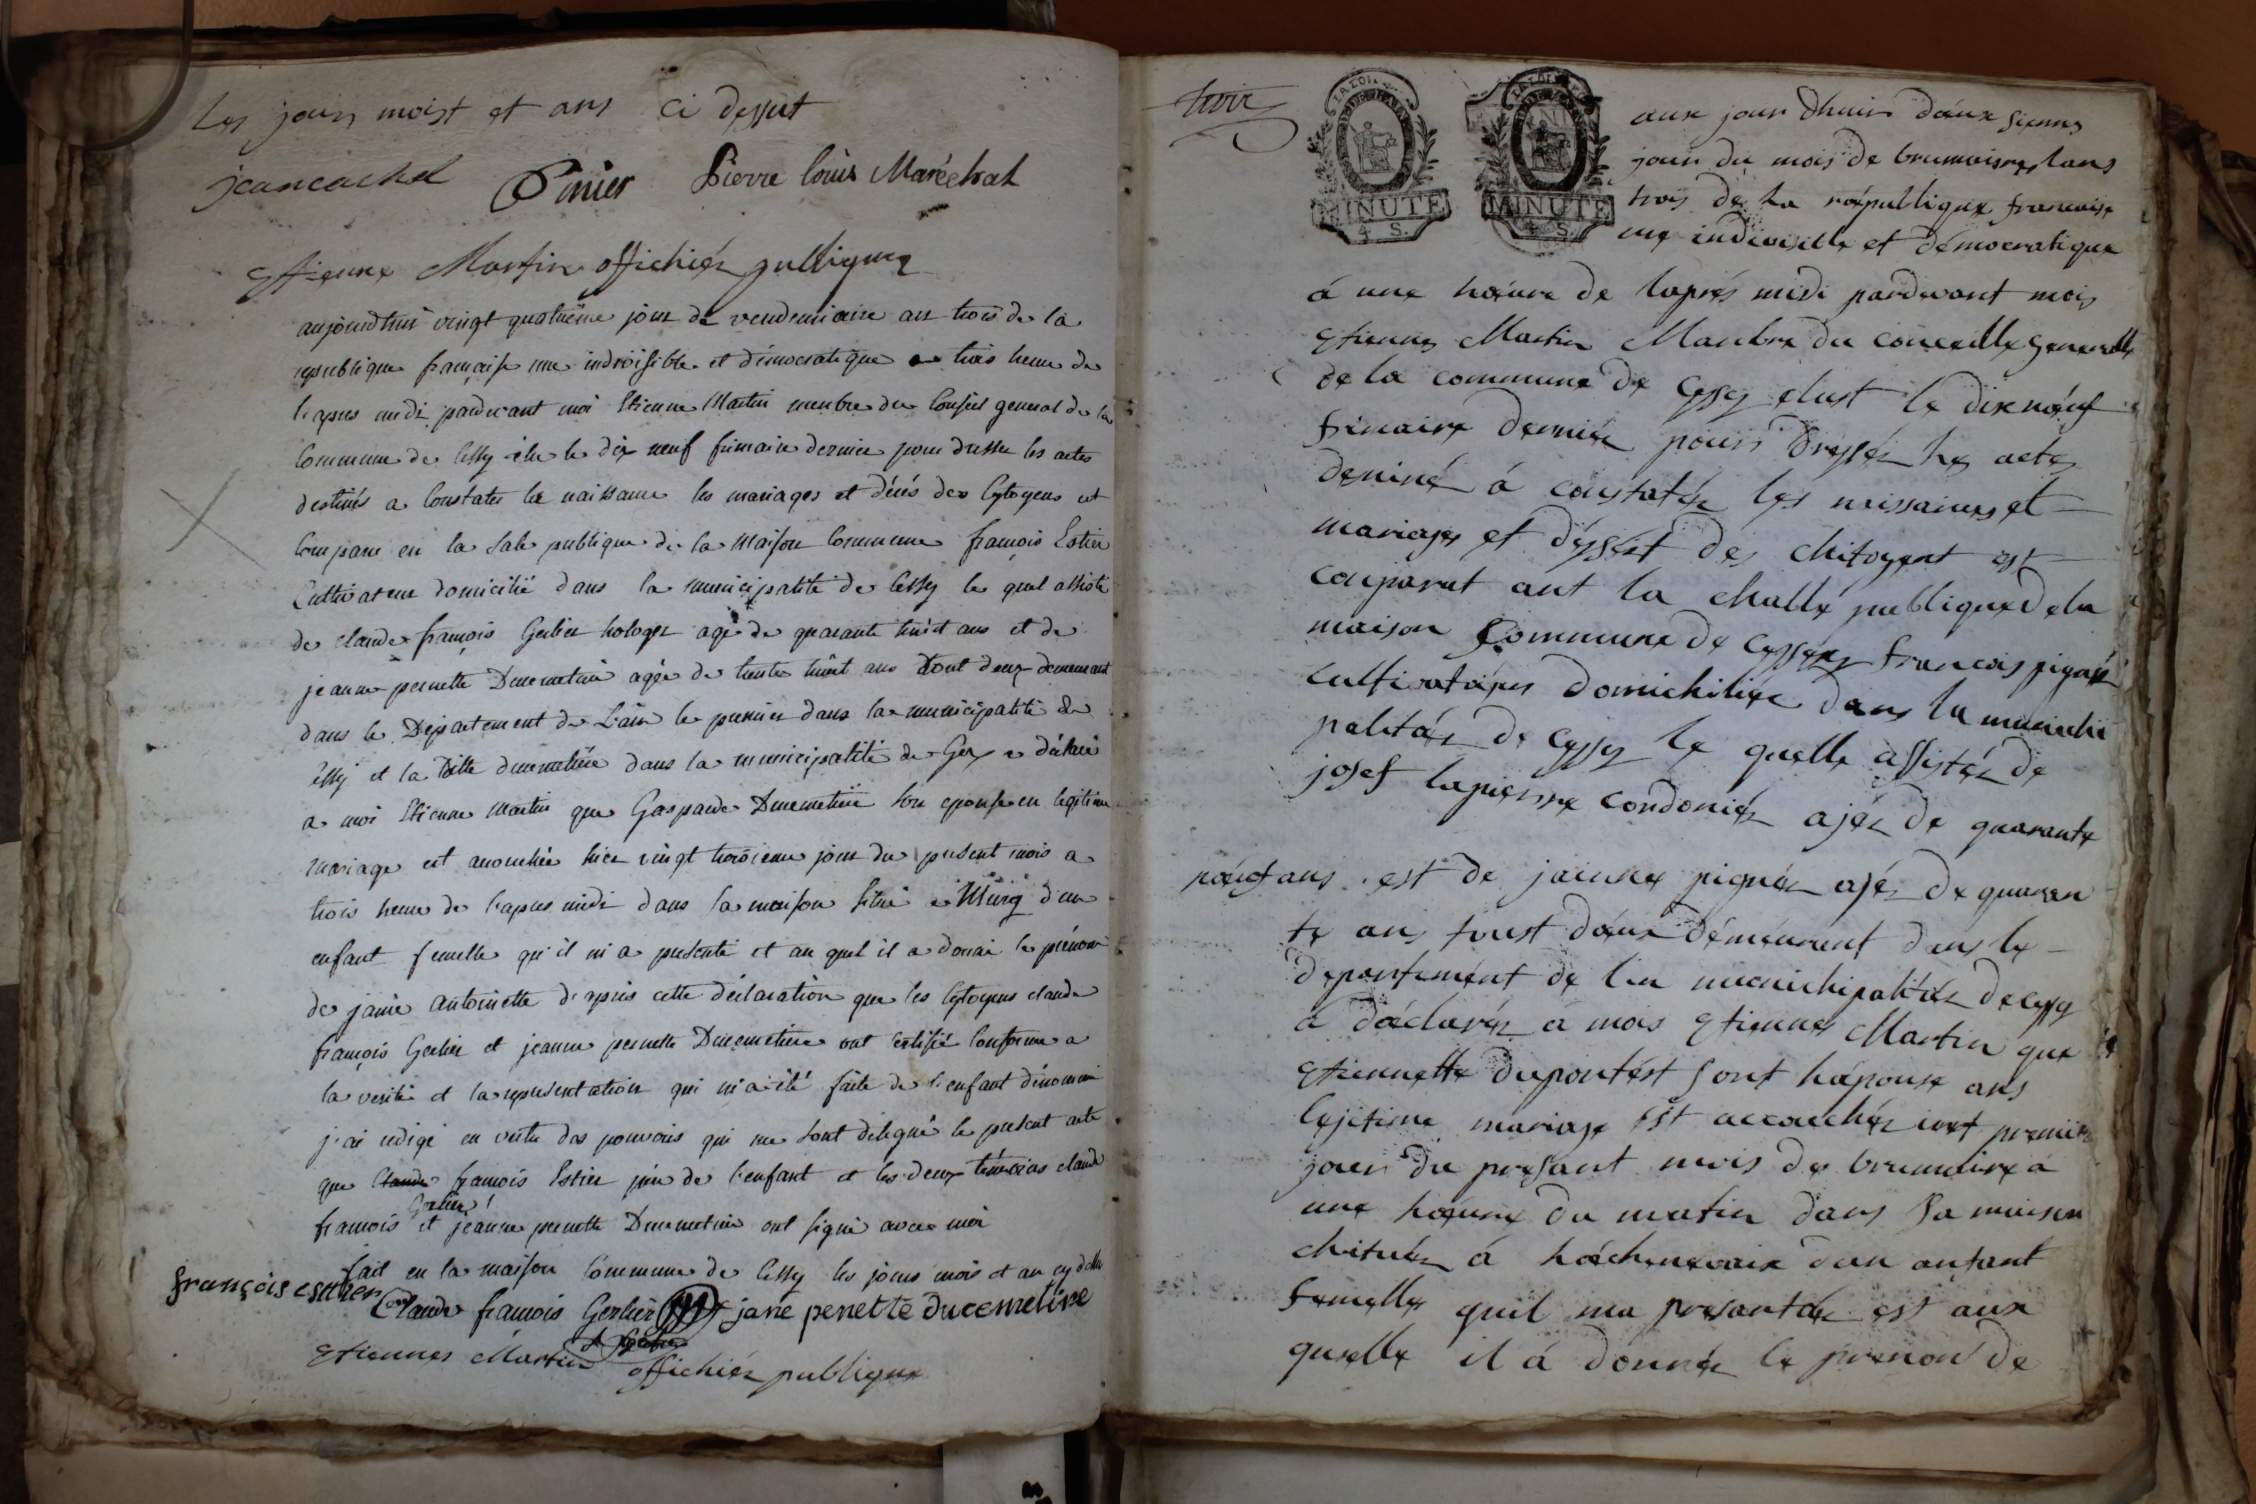 Les jours moist et ans ci dessut
jean cachet Pinier Pierre louis Maréchal
etienne Martin offichiér publiques
aujourdhui vingt quatrieme jour de vendemiaire an trois de la
republique françaises une indivisible et démocratique a trois heure de
l'apres midi pardevant moi Etienne Martin membre du Conseil general de la
Commune de Cessy élu le dix neuf frimaire dernier pour dresser les actes
destinés a Constater la naissance les mariages et décés des Cytoyens est
Comparu en la Sale publique de la Maison Commune françois Estier
Cultivateur domicilié dans la municipalité de Cessy le quel assisté
de claude françois Gerlier hologer agé de quarante huit ans et de
jeanne pernette Ducemetiere agée de trente huit ans tout deux demeurant
dans le Departement de L'ain le premier dans la municipalité de
Cessy et la Ditte ducemetiere dans la municipalité de Gex a déclaré
a moi Etienne Martin que Gasparde Ducemetiere son epouse en legitime
mariage est accouchée hier vingt troisieme jour du present mois a
trois heure de l'apres midi dans sa maison située a d'un
enfant femelle qu'il m'a presenté et au quel il a donné le prénom
de janne antoinette d'apres cette déclaration que les Cytoyens claude
françois Gerlier et jeanne pernette Ducemetiere ont certifié Conforme a
la verité et la representation qui m'a été faite de l'enfant dénommé
j'ai redigé en vertu des pouvoirs qui me sont délegué le present acte
que Claude françois Estier père de l'enfant et les deux témoins claude
Gerlier
françois et jeanne pernette Ducemetiere ont signé avec moi
fait en la maison Commune de Cessy les jours mois et an cy dessus
françois esttier Claude françois Gerlier jane penette ducemetire
etiennes Martin offichiér publique
trois
LA LOI
MINUTE
4 S.
MINUTE
4 S.
aux jour dhuis dœuxsiemes
jour du mois de brumaires lans
trois de la répullique francaise
une indivisille et démocratique
á une hœure de laprés midi pardevant mois
etiennes Martin Manbre du conceille generalle
de la commune de cessy elust le dix nœuf
frimaire dernier pours dressér les actes
deniné á constatér les naissances et
mariages et déssést des chitoyent est
conparut ant la challé publique de la
maison Commune de cessy francois pigniér
cultivatéurs domichiliér dans la munichi
palitér de cessy le quelle assistér de
josef lapierre cordoniér ajér de quarante
nœuf ans est de jainne pignér ajér de quaran
te ans toust dœux démeurent dans le
départemént de lin munichipalitér de cessy
á dœclarér a mois etiennes Martin que
etiennette dupontést sont hépouse ans
lejitime mariage est accouchér premier
jour du présant mois de brumaire a
une hœure du matin dans sa maison
chituér á dun anfant
femelle quil ma présantér est aux
quelle il á donnér le prenon de